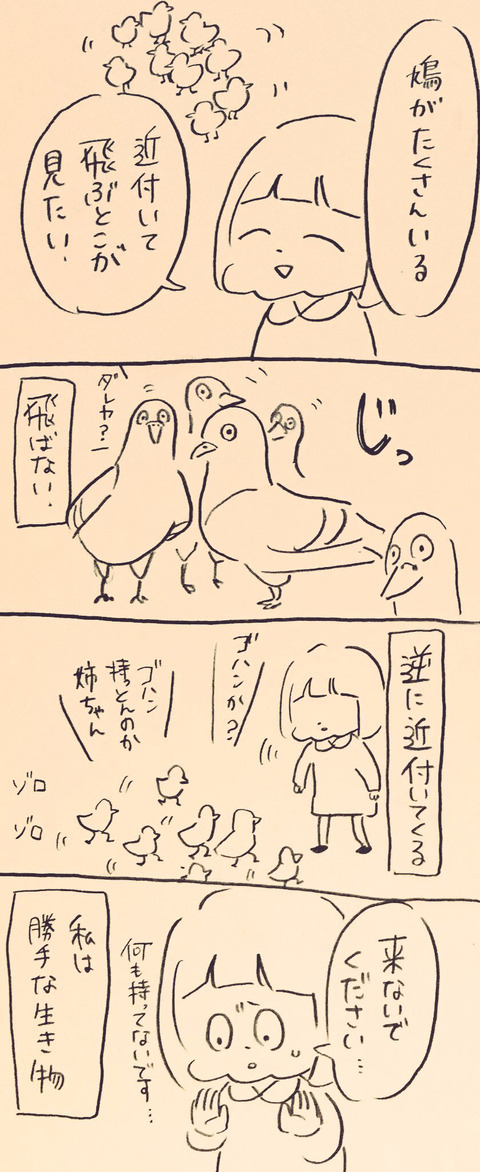 鳩がたくさんいる
近付いて
飛ぶとこが
見たい.
じっ
ダレヤ?
飛ばない.
逆に近付いてくる
ゴハンか?
ゴハン
持っとんのか
姉ちゃん
ゾロ
ゾロ
来ないで
ください…
何も持ってないです…
私は
勝手な生き物